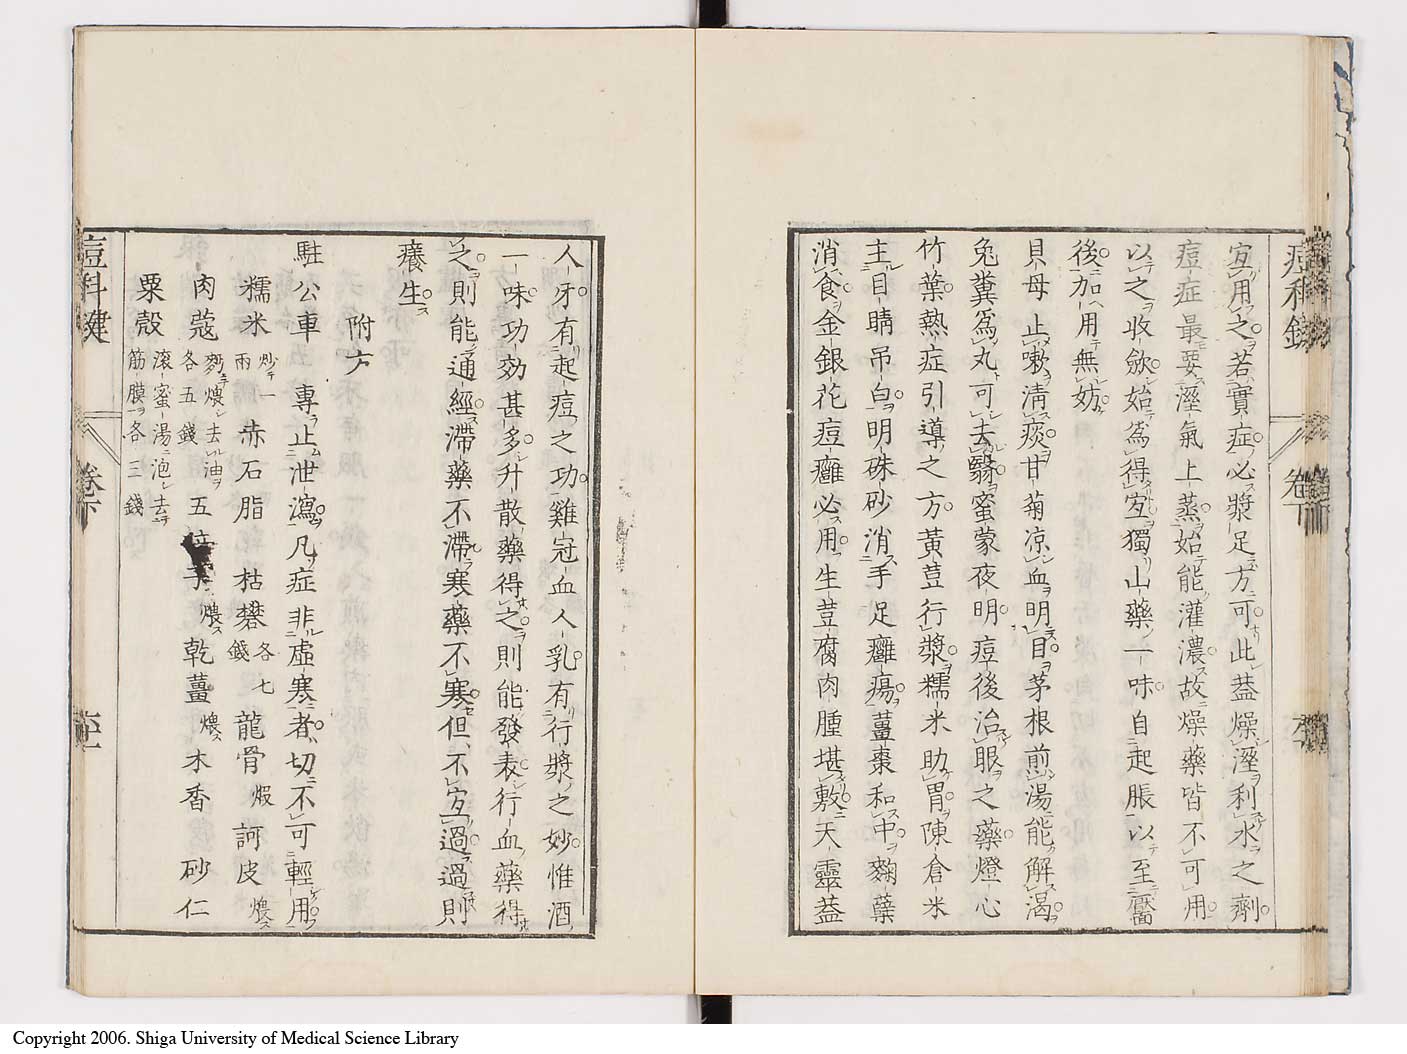 痘科鍵
卷下
宜用之若實症必漿足方可此葢燥溼利水之劑
痘症最要溼氣上蒸始能灌濃故燥藥皆不可用
以之收歛始爲得宜獨山藥一味自起脹以至靨
後加用無妨
貝母止嗽清痰甘菊凉血明目茅根煎湯能解渴
兔糞爲丸可去翳蜜蒙夜明痘後治眼之藥燈心
竹葉熱症引導之方黃荳行漿糯米助胃陳倉米
主目睛吊白明硃砂消手足癰瘍薑棗和中麴蘗
消食金銀花痘癰必用生荳腐肉腫堪敷天靈葢
人牙有起痘之功雞冠血人乳有行漿之妙惟酒
一味功効甚多升散藥得之則能發表行血藥得
之則能通經滯藥不滯寒藥不寒但不宜過過則
癢生
附方
駐公車 專止泄瀉凡症非虛寒者切不可輕用
糯米炒一兩 赤石脂 枯礬各七錢 龍骨煅 訶皮煨
肉蔻麪煨去油各五錢 五倍子煨 乾薑煨 木香 砂仁
粟殼滾蜜湯泡去筋膜各三錢
痘科鍵
卷下
六十一